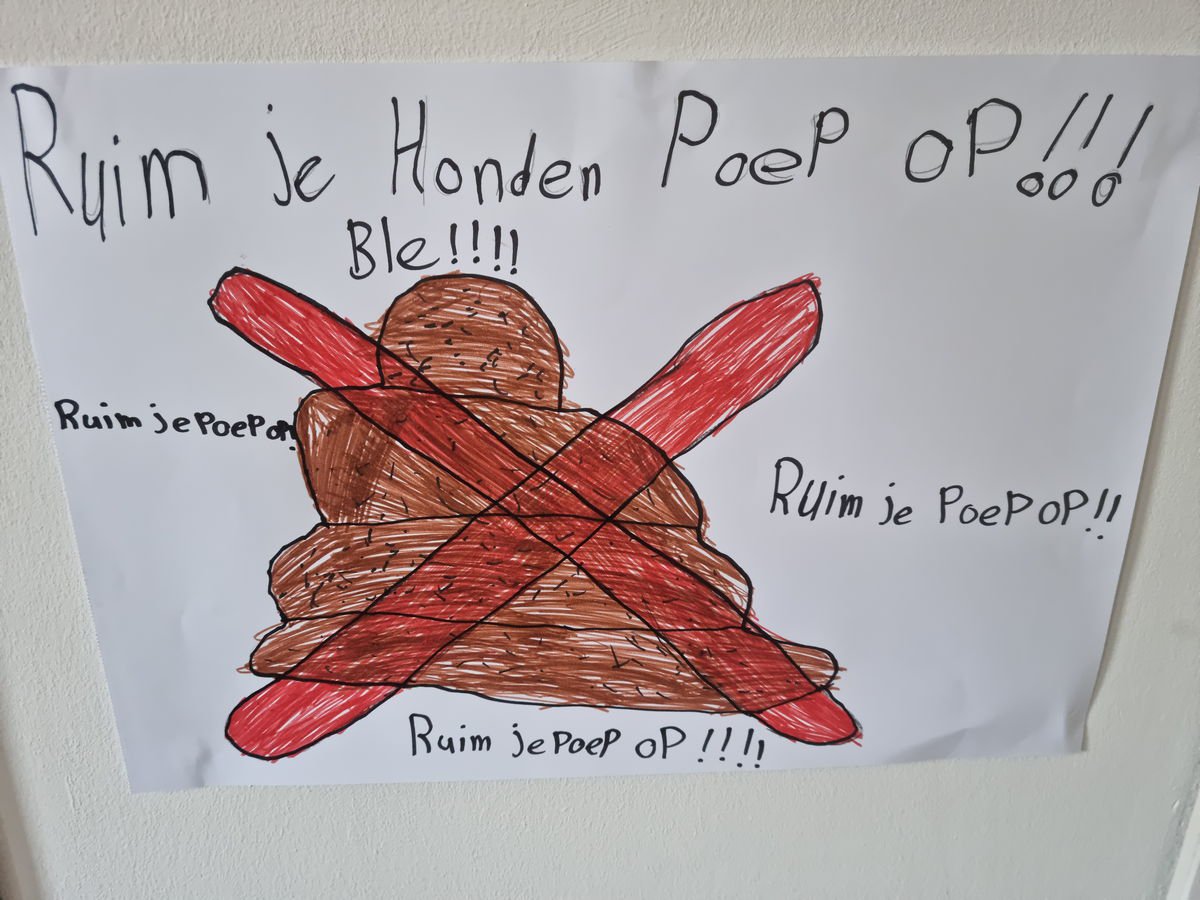 Ruim je Honden PoeP oP!!!
Ble!!!!
Ruim je PoeP oP!
Ruim je PoeP oP!!
Ruim je PoeP oP!!!!